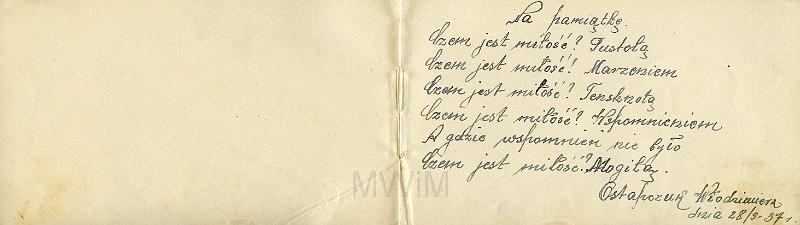 Na pamiątkę.
Czem jest miłość? Pustotą
Czem jest miłość! Marzeniem
Czem jest miłość? Tensknotą
Czem jest miłość? Wspomnieniem
A gdzie wspomnień nie było
Czem jest miłość? Mogiłą.
Ostapczuk Włodzimierz
dzia 28/3-37 r.
MWiM